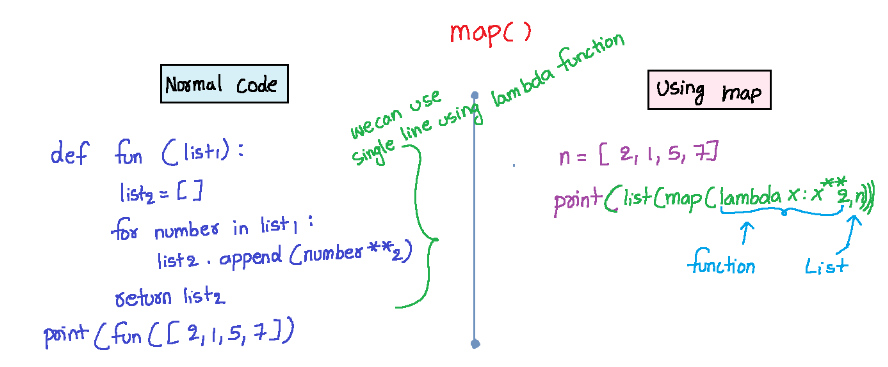 map()
Normal Code
def fun (list1):
list2 = []
for number in list1 :
list2 . append (number **2)
return list2
print (fun ([ 2, 1, 5, 7 ])
we can use
single line using lambda function
Using map
n = [ 2, 1, 5, 7]
print(list(map(lambda x : x**2, n)))
function
List